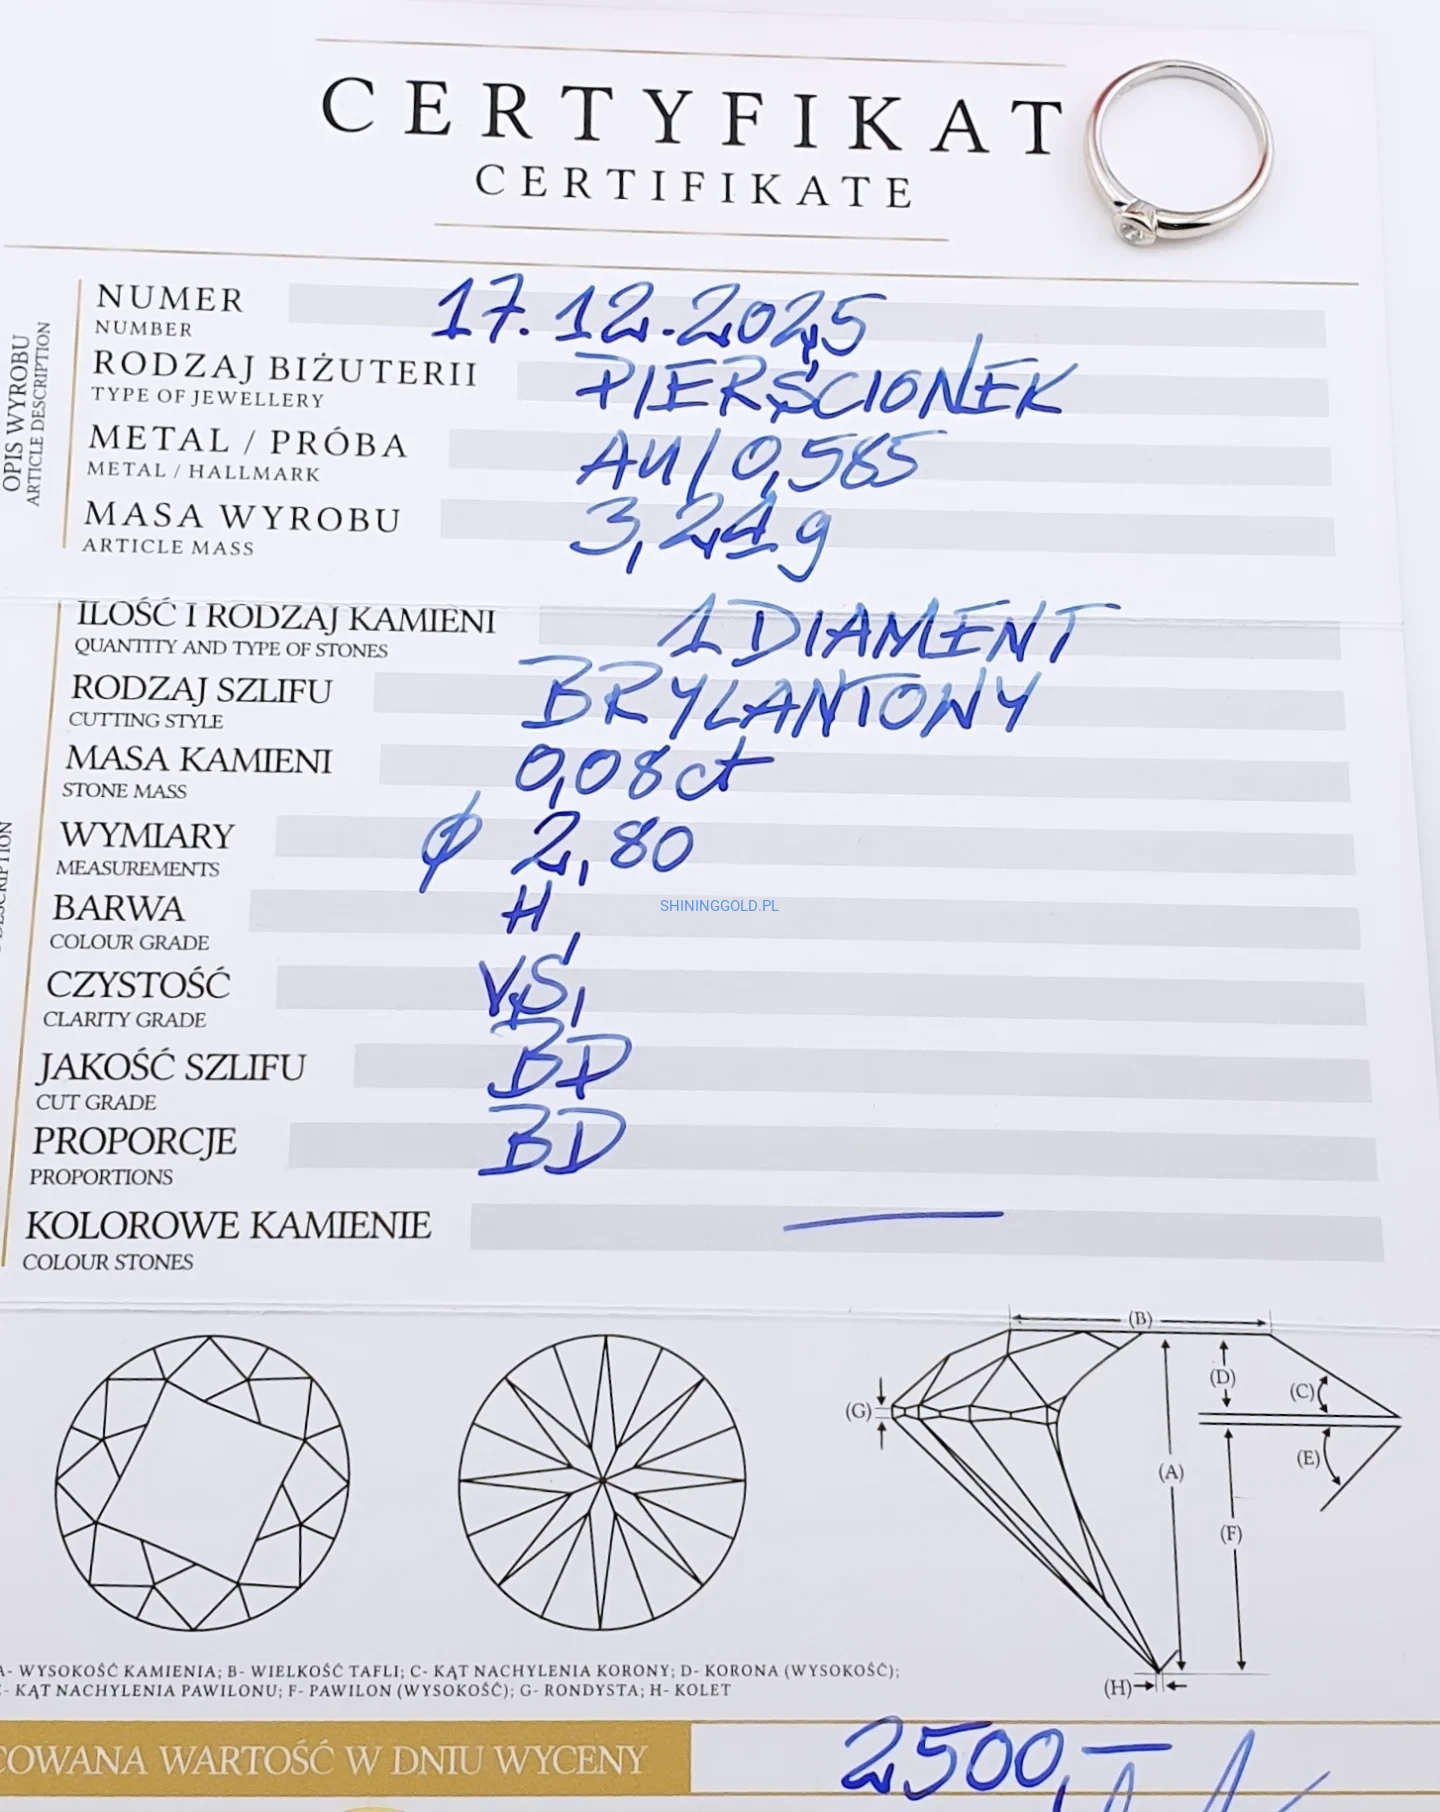 CERTYFIKAT
CERTIFIKATE
OPIS WYROBU
ARTICLE DESCRIPTION
NUMER 17.12.2025
NUMBER
RODZAJ BIŻUTERII PIERŚCIONEK
TYPE OF JEWELLERY
METAL / PRÓBA AU/0,585
METAL / HALLMARK
MASA WYROBU 3,21g
ARTICLE MASS
ILOŚĆ I RODZAJ KAMIENI 1 DIAMENT
QUANTITY AND TYPE OF STONES
RODZAJ SZLIFU BRYLANTOWY
CUTTING STYLE
MASA KAMIENI 0,08ct
STONE MASS
WYMIARY φ 2,80
MEASUREMENTS
BARWA H
COLOUR GRADE
SHININGGOLD.PL
CZYSTOŚĆ VS1
CLARITY GRADE
JAKOŚĆ SZLIFU BD
CUT GRADE
PROPORCJE BD
PROPORTIONS
KOLOROWE KAMIENIE —
COLOUR STONES
(B)
(D)
(C)
(G)
(E)
(A)
(F)
(H)
A- WYSOKOŚĆ KAMIENIA; B- WIELKOŚĆ TAFLI; C- KĄT NACHYLENIA KORONY; D- KORONA (WYSOKOŚĆ);
- KĄT NACHYLENIA PAWILONU; F- PAWILON (WYSOKOŚĆ); G- RONDYSTA; H- KOLET
COWANA WARTOŚĆ W DNIU WYCENY 2500,—